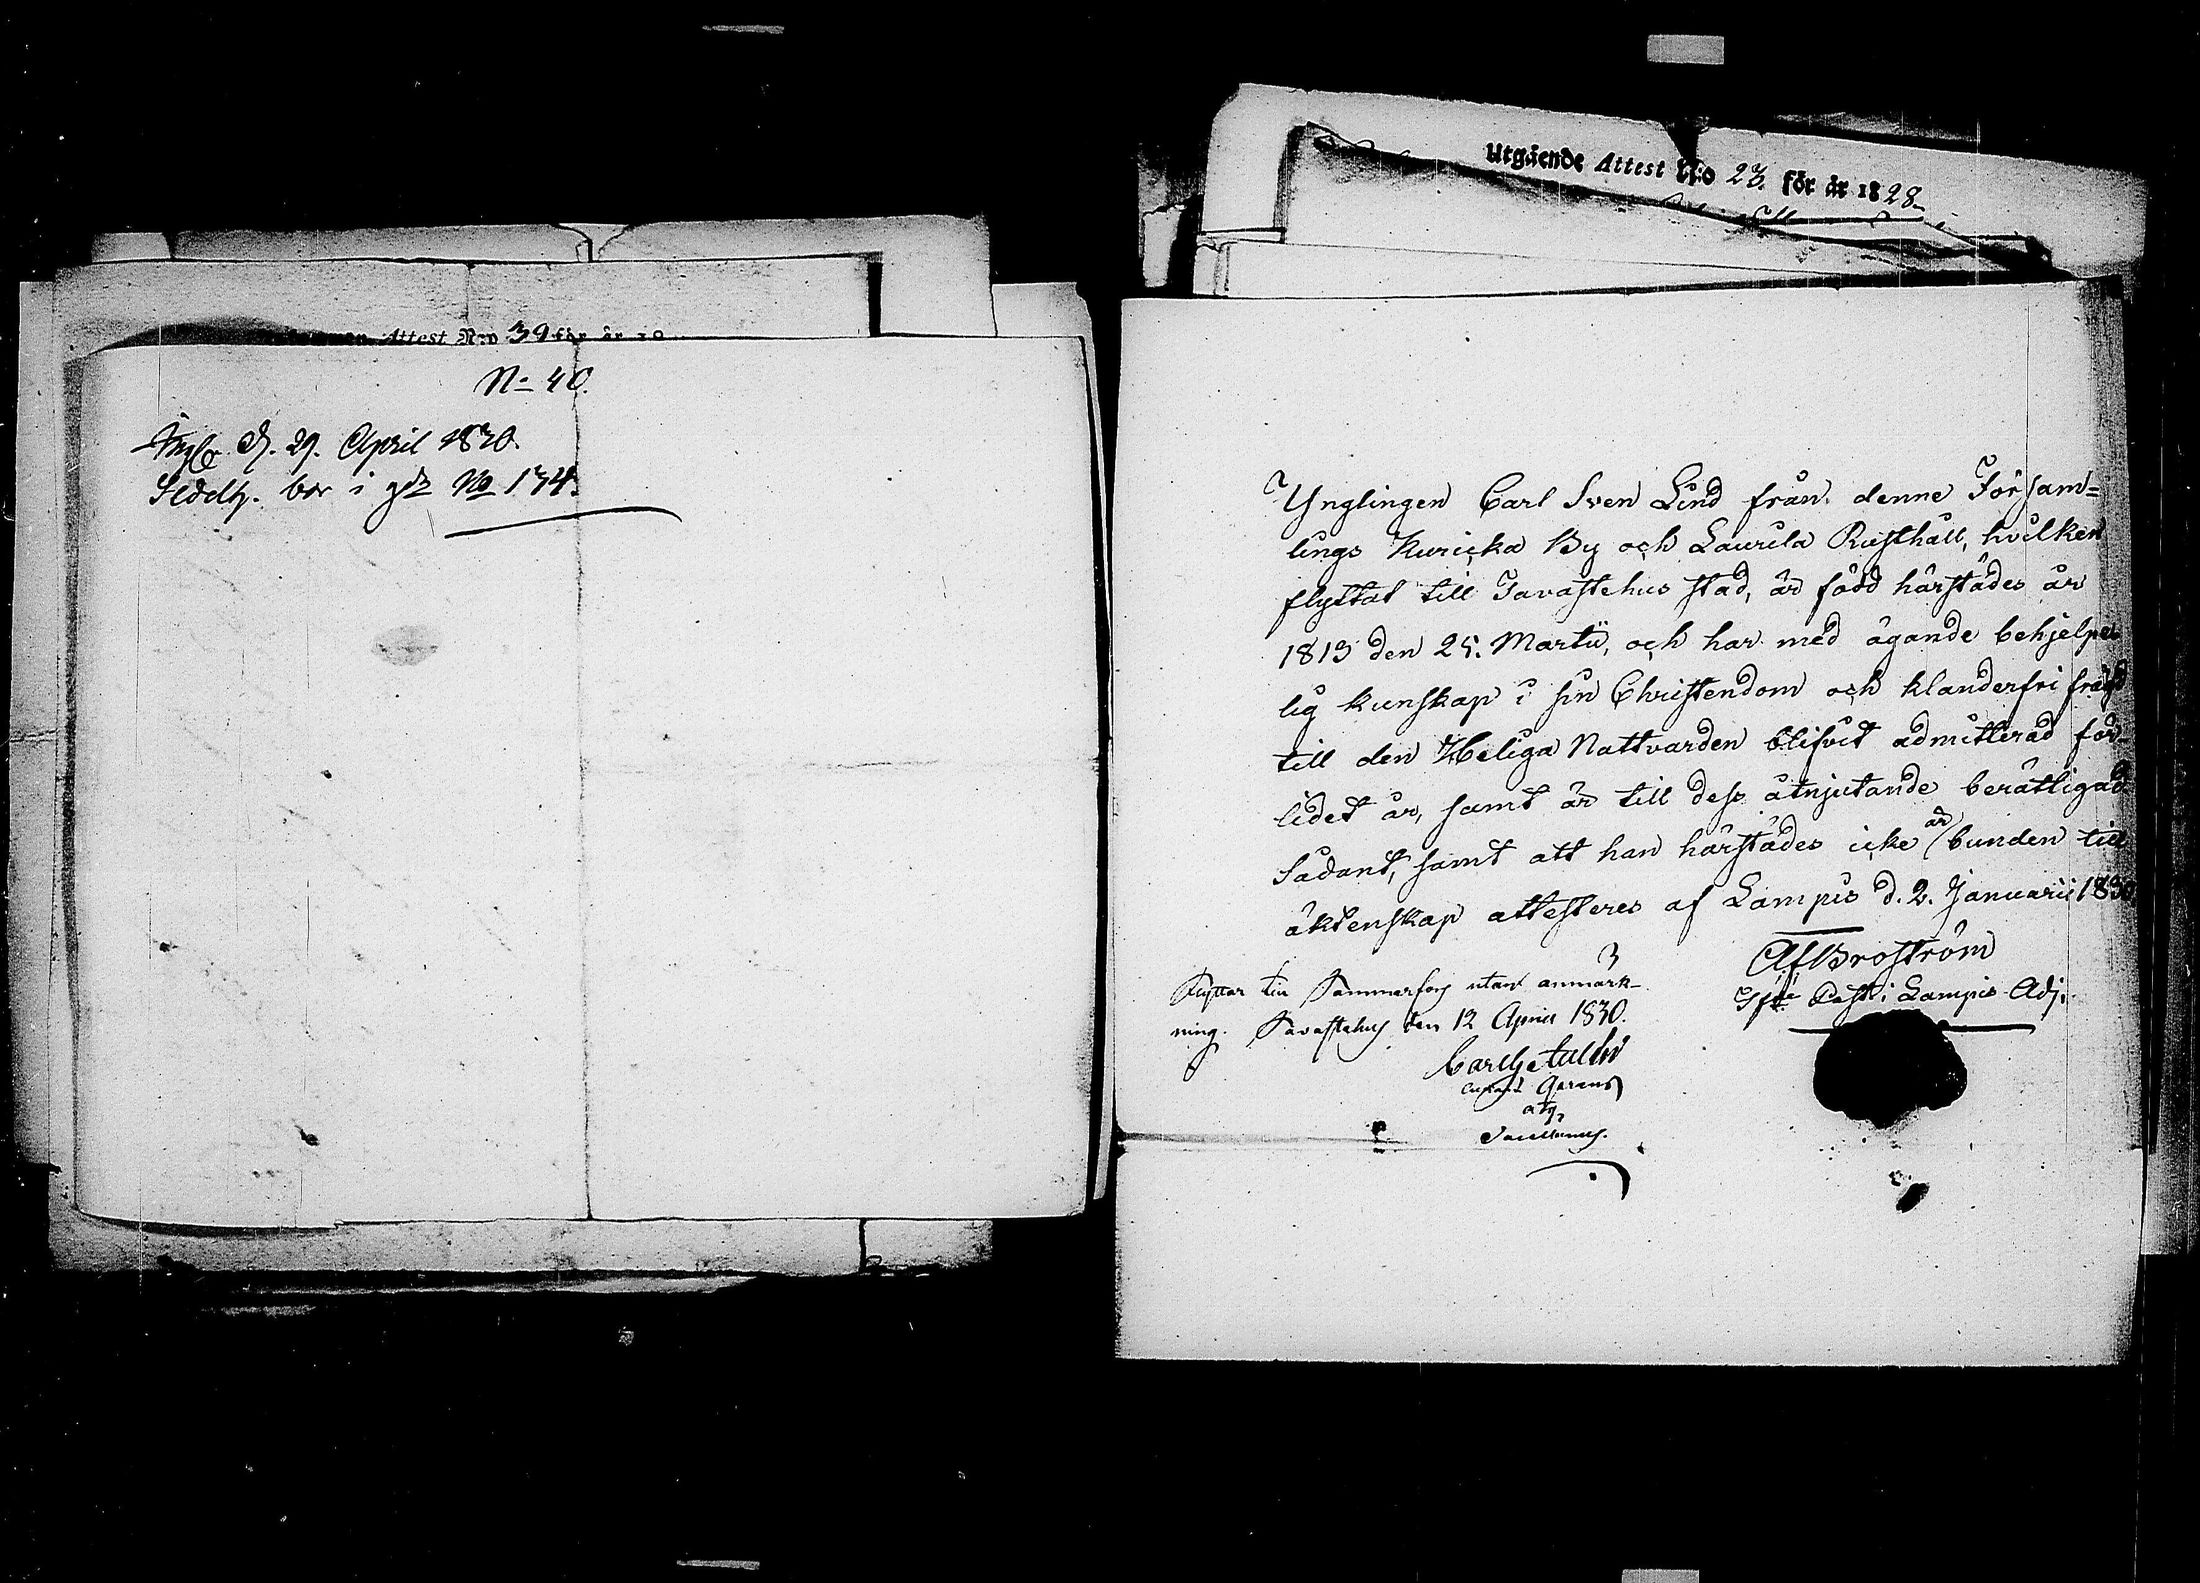 Attest N:o 39 för år 18
N:o 40.
d. 29. April 1830.
bor i gd N:o 134.
Utgående Attest N:o 23. för år 1828.
Ynglingen Carl Sven Lind från denne Församlings
Kuricka By och Laurila Rusthåll, hvilken
flyttat till Tavastehus stad, är född härstädes år
1813 den 25. Martii, och har med ägande behjelpe-
lig kunskap i sin Christendom och klanderfri fräjd
till den Heliga Nattvarden blifvit admitterad för-
lidet år, samt är till dess åtnjutande berättigad
Sådant, samt att han härstädes icke är bunden till
äktenskap attesteres af Lampis d. 2. Januarii 1830
Af Broström
Past. i Lampis Adj.
3
Flyttar till Hammarfors utan anmärk-
ning. Tavastehus den 12 April 1830.
Carl
atq.
Sacellanus.